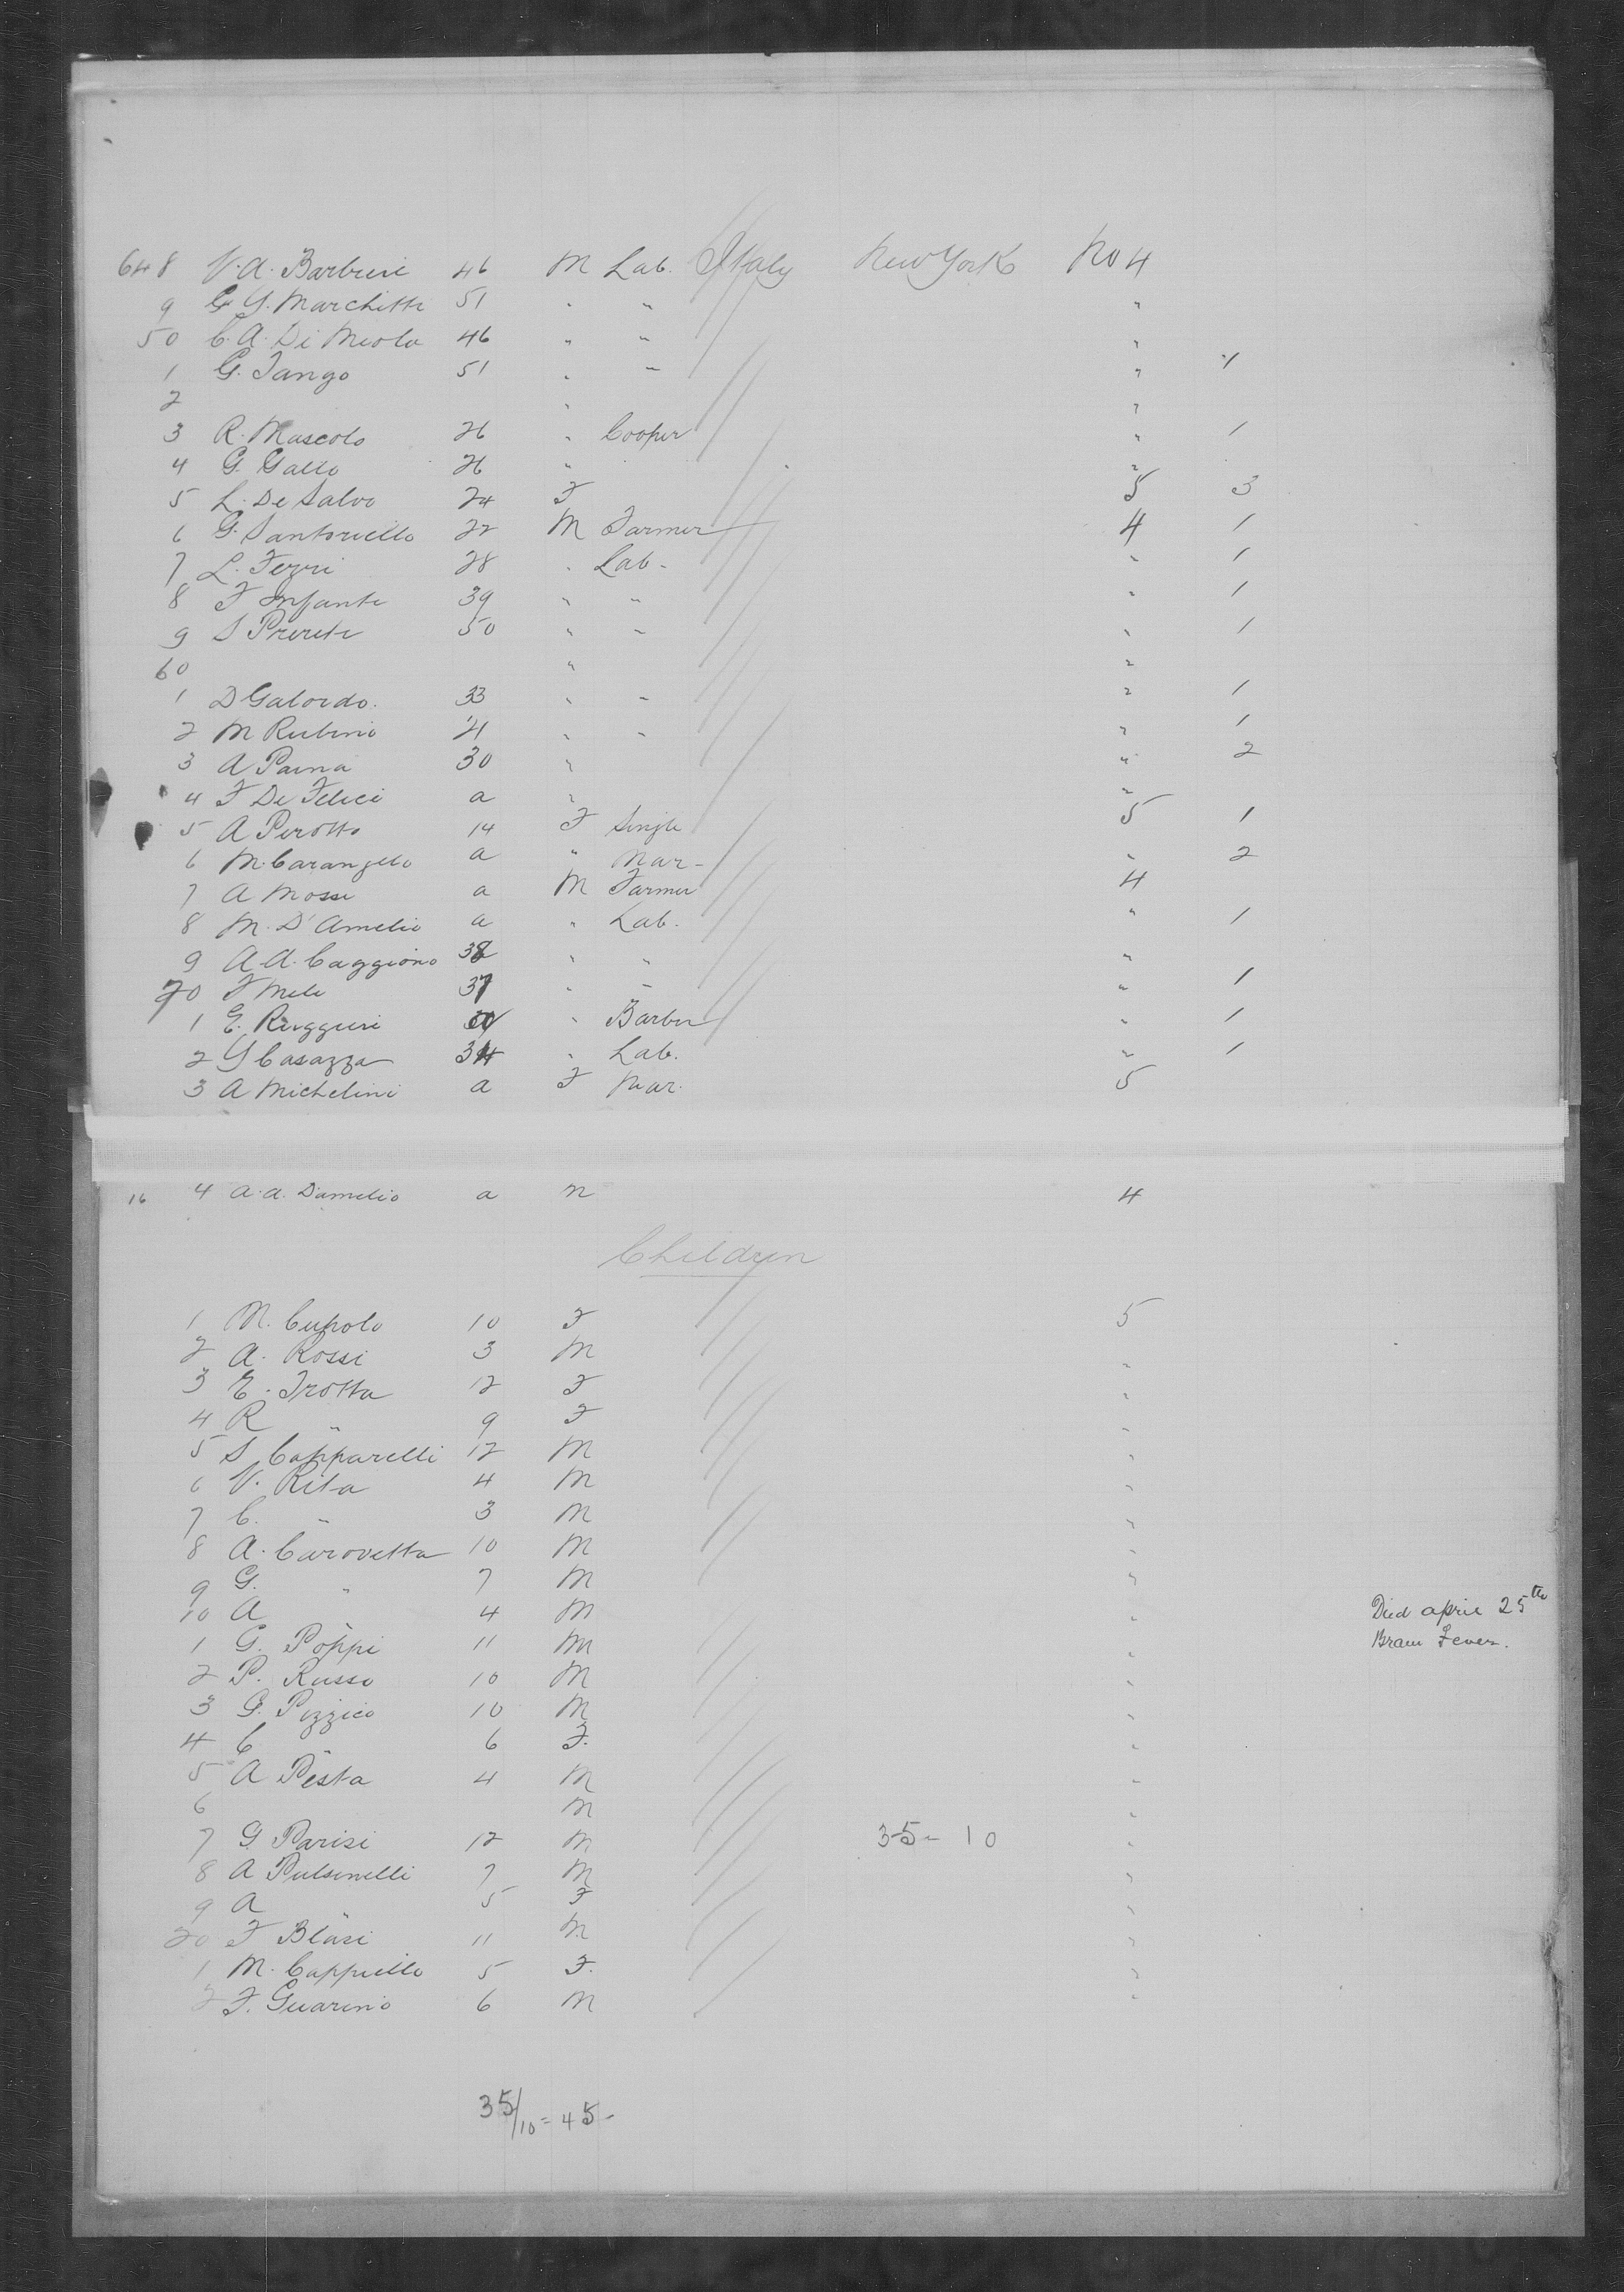 648 V. A. Barbieri 46 M Lab. Italy New York No 4
9 G Y. Marchitti 51 " " "
50 C. A. Di Meola 46 " " "
1 G. Tango 51 " " " 1
2 " "
3 R. Mascolo 26 " Cooper " 1
4 G. Gallo 26 " "
5 L. De Salvo 24 F 5 3
6 G. Santoriello 22 M Farmer 4 1
7 L. Ferri 28 " Lab. " 1
8 F Infante 39 " " " 1
9 S 50 " " " 1
60 " "
1 D Galordo. 33 " " " 1
2 M Rubino 21 " " " 1
3 A Paina 30 " " 2
4 F De Felici a " "
5 A Perotto 14 F Single 5 1
6 M. Carangelo a " Mar- " 2
7 A Mosse a M Farmer 4
8 M. D'Amelio a " Lab. " 1
9 A. A. Caggiono 38 " " "
70 F Mele 37 " " " 1
1 E. Ruggieri " Barber " 1
2 Y Casazza 34 " Lab. " 1
3 A Michelini a F Mar. 5
16 4 A. A. Damelio a M 4
Children
1 M. Cupolo 10 F 5
2 A. Rossi 3 M "
3 E. Trotta 12 F "
4 R " 9 F "
5 S Capparelli 12 M "
6 V. Rita 4 M "
7 C. " 3 M "
8 A. Carovetta 10 M "
9 G. " 7 M "
10 A " 4 M " Died April 25th
1 G. Poppi 11 M " Brain Fever.
2 P. Russo 10 M "
3 G. Pizzico 10 M "
4 C " 6 F. "
5 A Pesta 4 M "
6 M "
7 G Parisi 12 M 35- 10 "
8 A Pulsinelli 7 M "
9 A " 5 F "
20 F Blasi 11 M "
1 M. Cappiello 5 F. "
2 F. Guarino 6 M "
35/10 = 45-